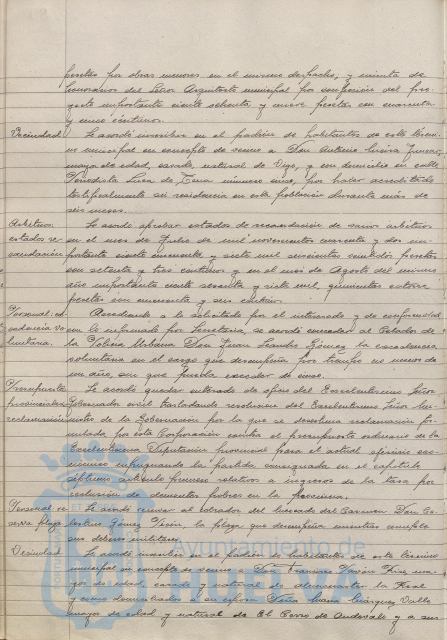 pesetas por obras menores en el mismo despacho, y minuta de
honorarios del Señor Arquitecto municipal por confección del pro-
yecto importante ciento setenta y nueve pesetas con cuarenta
y cinco céntimos.
Vecindad. Se acordó inscribir en el padrón de habitantes de este térmi-
no municipal en concepto de vecino a Don Antonio
mayor de edad, casado, natural de Vigo, y con domicilio en calle
Periodista Luca de Tena número once, por haber acreditado
testificalmente su residencia en esta población durante más de
seis meses.
Arbitrios: Se acordó aprobar estados de recaudación de varios arbitrios
estados re- en el mes de Julio de mil novecientos cuarenta y dos im-
caudación portante ciento cincuenta y siete mil pesetas
con setenta y tres céntimos y en el mes de Agosto del mismo
año importante ciento sesenta y siete mil quinientas catorce
pesetas con cincuenta y seis céntimos.
Personal: ex- Accediendo a lo solicitado por el interesado y de conformidad
cedencia vo- con lo informado por Secretaría, se acordó conceder al Celador de
luntaria. la Policía Urbana Don Juan Gómez la excedencia
voluntaria en el cargo que desempeña por tiempo no menos de
un año, sin que pueda exceder de cinco.
Presupuesto Se acordó quedar enterado de oficio del Excelentísimo Señor
provincial: Gobernador civil trasladando resolución del Excelentísimo Señor Mi-
reclamación nistro de la Gobernación por la que se desestima reclamación for-
mulada por esta Corporación contra el presupuesto ordinario de la
Excelentísima Diputación provincial para el actual ejercicio eco-
nómico impugnando la partida consignada en el capítulo
séptimo artículo primero relativo a ingresos de la tasa por
reclusión de dementes pobres en la provincia.
Personal: re- Se acordó reservar al cobrador del mercado del Carmen Don Ce-
serva plaza lestino Gómez la plaza que desempeña mientras cumple
sus deberes militares.
Vecindad Se acordó inscribir en el padrón de habitantes de este término
municipal en concepto de vecino a Don Francisco ma-
yor de edad, casado y natural de
y como domiciliados a su esposa Doña María Márquez Valle
mayor de edad y natural de El Cerro de Andévalo y a sus
Ayuntamiento de
HUELVA